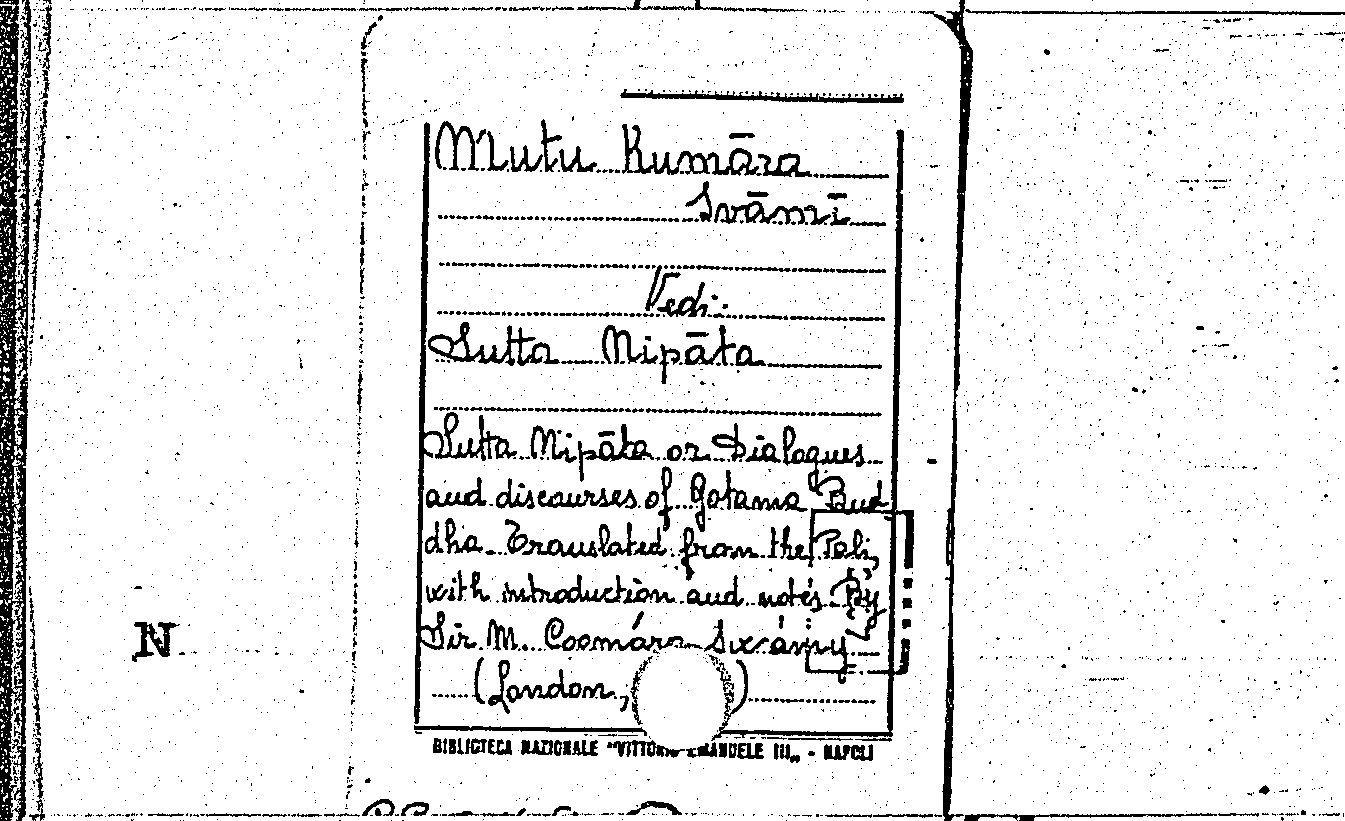 Mutu Kumāra
Svāmī
Vedi:
Sutta Nipāta
Sutta Nipāta or Dialogues
and discourses of Gotama Bud
dha. Translated from the Pali,
with introduction and notes. By
Sir M. Coomára Swámy
(London, )
N
BIBLIOTECA NAZIONALE "VITTORIO EMANUELE III„ - NAPOLI